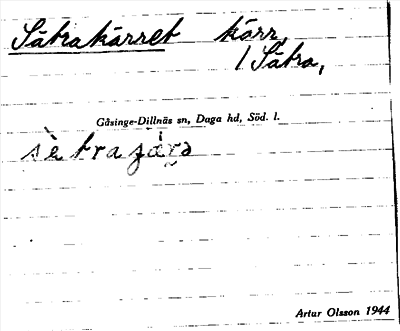 Sätrakärret kärr,
/ Sätra,
Gåsinge-Dillnäs sn, Daga hd, Söd. l.
Artur Olsson 1944